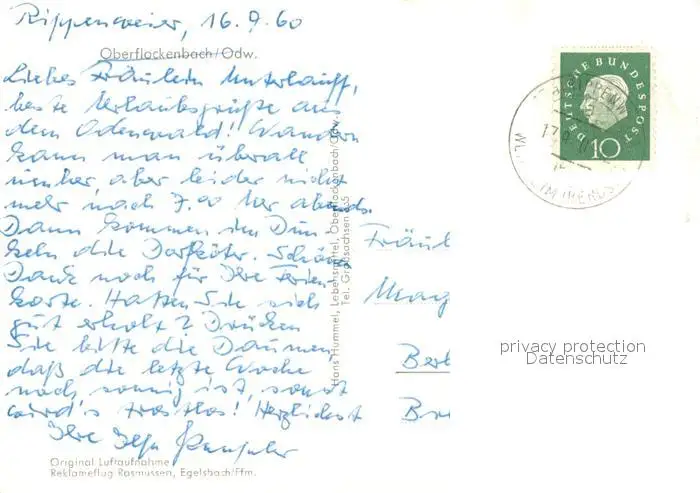 Rippenweier, 16.9.60
Oberflockenbach/Odw.
Liebes Fräulein Unterlauff,
beste Urlaubsgrüße aus
dem Odenwald! Wandern
kann man überall
umher, aber leider nicht
mehr nach 7.00 Uhr abends.
Dann kommen im Dun-
keln die Dorfköter. Schön
Dank noch für Ihre Ferien
karte. Hatten Sie sich
gut erholt? Drücken
Sie bitte die Daumen,
daß die letzte Woche
noch sonnig ist, sonst
wird's trostlos! Herzlichst
Ihre Ilse
Original Luftaufnahme
Reklameflug Rasmussen, Egelsbach/Ffm.
Hans Hummel, Lebensmittel, Oberflockenbach/Odw.
Tel. Großsachsen 635
DEUTSCHE BUNDESPOST
10
Fräul
Mag
Berl
privacy protection
Datenschutz